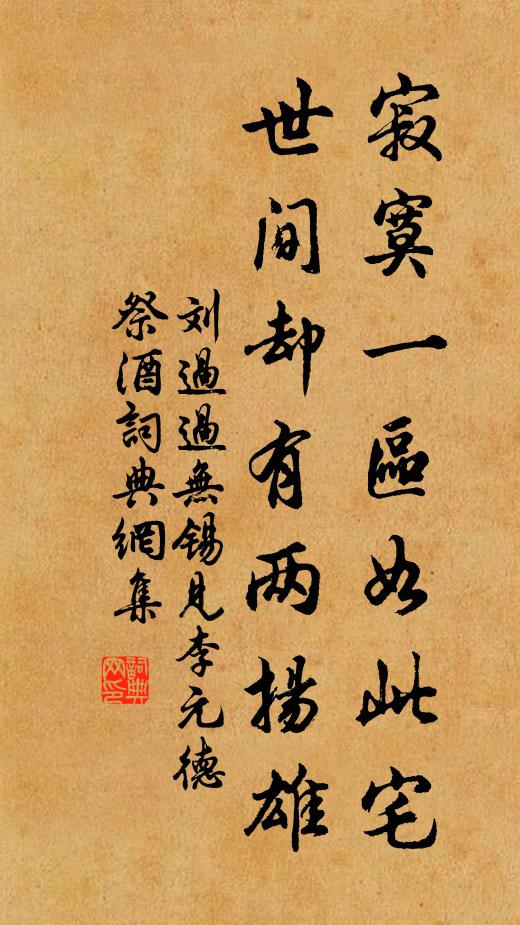 寂寞一區如此宅
世間却有两揚雄
刘過過無錫見李元德
祭酒詞典網集
詞典网印